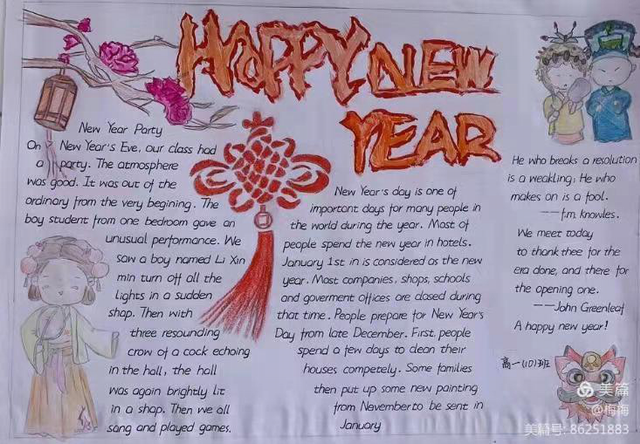 HAPPY NEW
YEAR
New Year Party
On New Year's Eve, our class had
a party. The atmosphere
was good. It was out of the
ordinary from the very begining. The
boy student from one bedroom gave an
unusual performance. We
saw a boy named Li Xin
min turn off all the
lights in a sudden
shap. Then with
three resounding
crow of a cock echoing
in the hall, the hall
was again brightly lit
in a shap. Then we all
sang and played games.
New Year's day is one of
important days for many people in
the world during the year. Most of
people spend the new year in hotels.
January 1st in is considered as the new
year. Most companies, shops, schools
and goverment offices are closed during
that time. People prepare for New Year's
Day from late December. First, people
spend a few days to clean their
houses competely. Some families
then put up some new painting
from November to be sent in
January
He who breaks a resolution
is a weakling; He who
makes on is a fool.
——f.m. knowles.
We meet today
to thank thee for the
era done, and there for
the opening one.
——John Greenleaf
A happy new year!
高一(10)班
美篇
@梅海
美篇号: 86251883